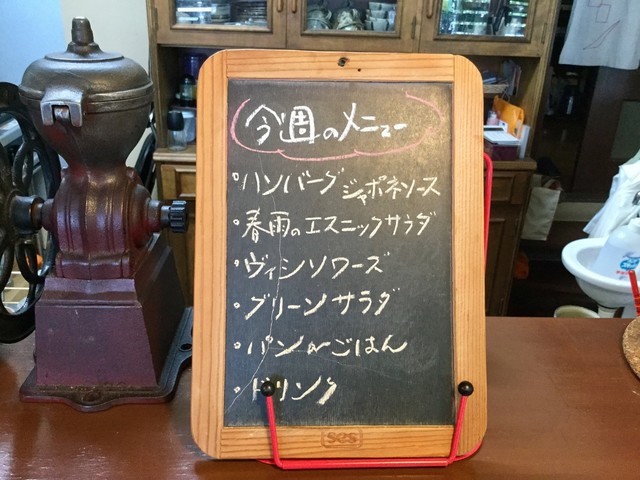 今週のメニュー
・ハンバーグ ジャポネソース
・春雨のエスニックサラダ
・ヴィシソワーズ
・グリーンサラダ
・パン or ごはん
・ドリンク
ses